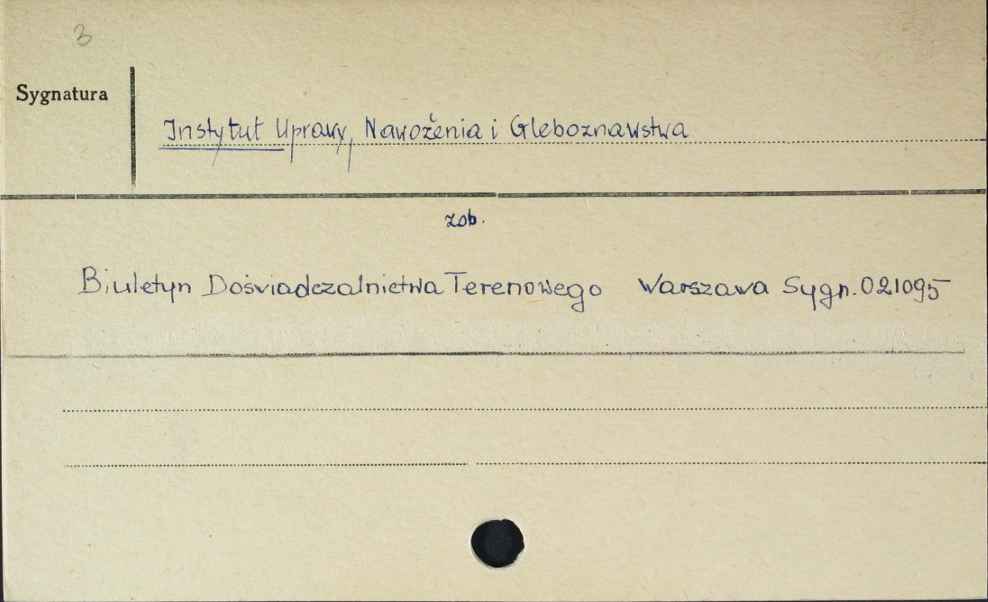 3
Sygnatura
Instytut Uprawy, Nawożenia i Gleboznawstwa
zob.
Biuletyn Doświadczalnictwa Terenowego Warszawa Sygn. 021095